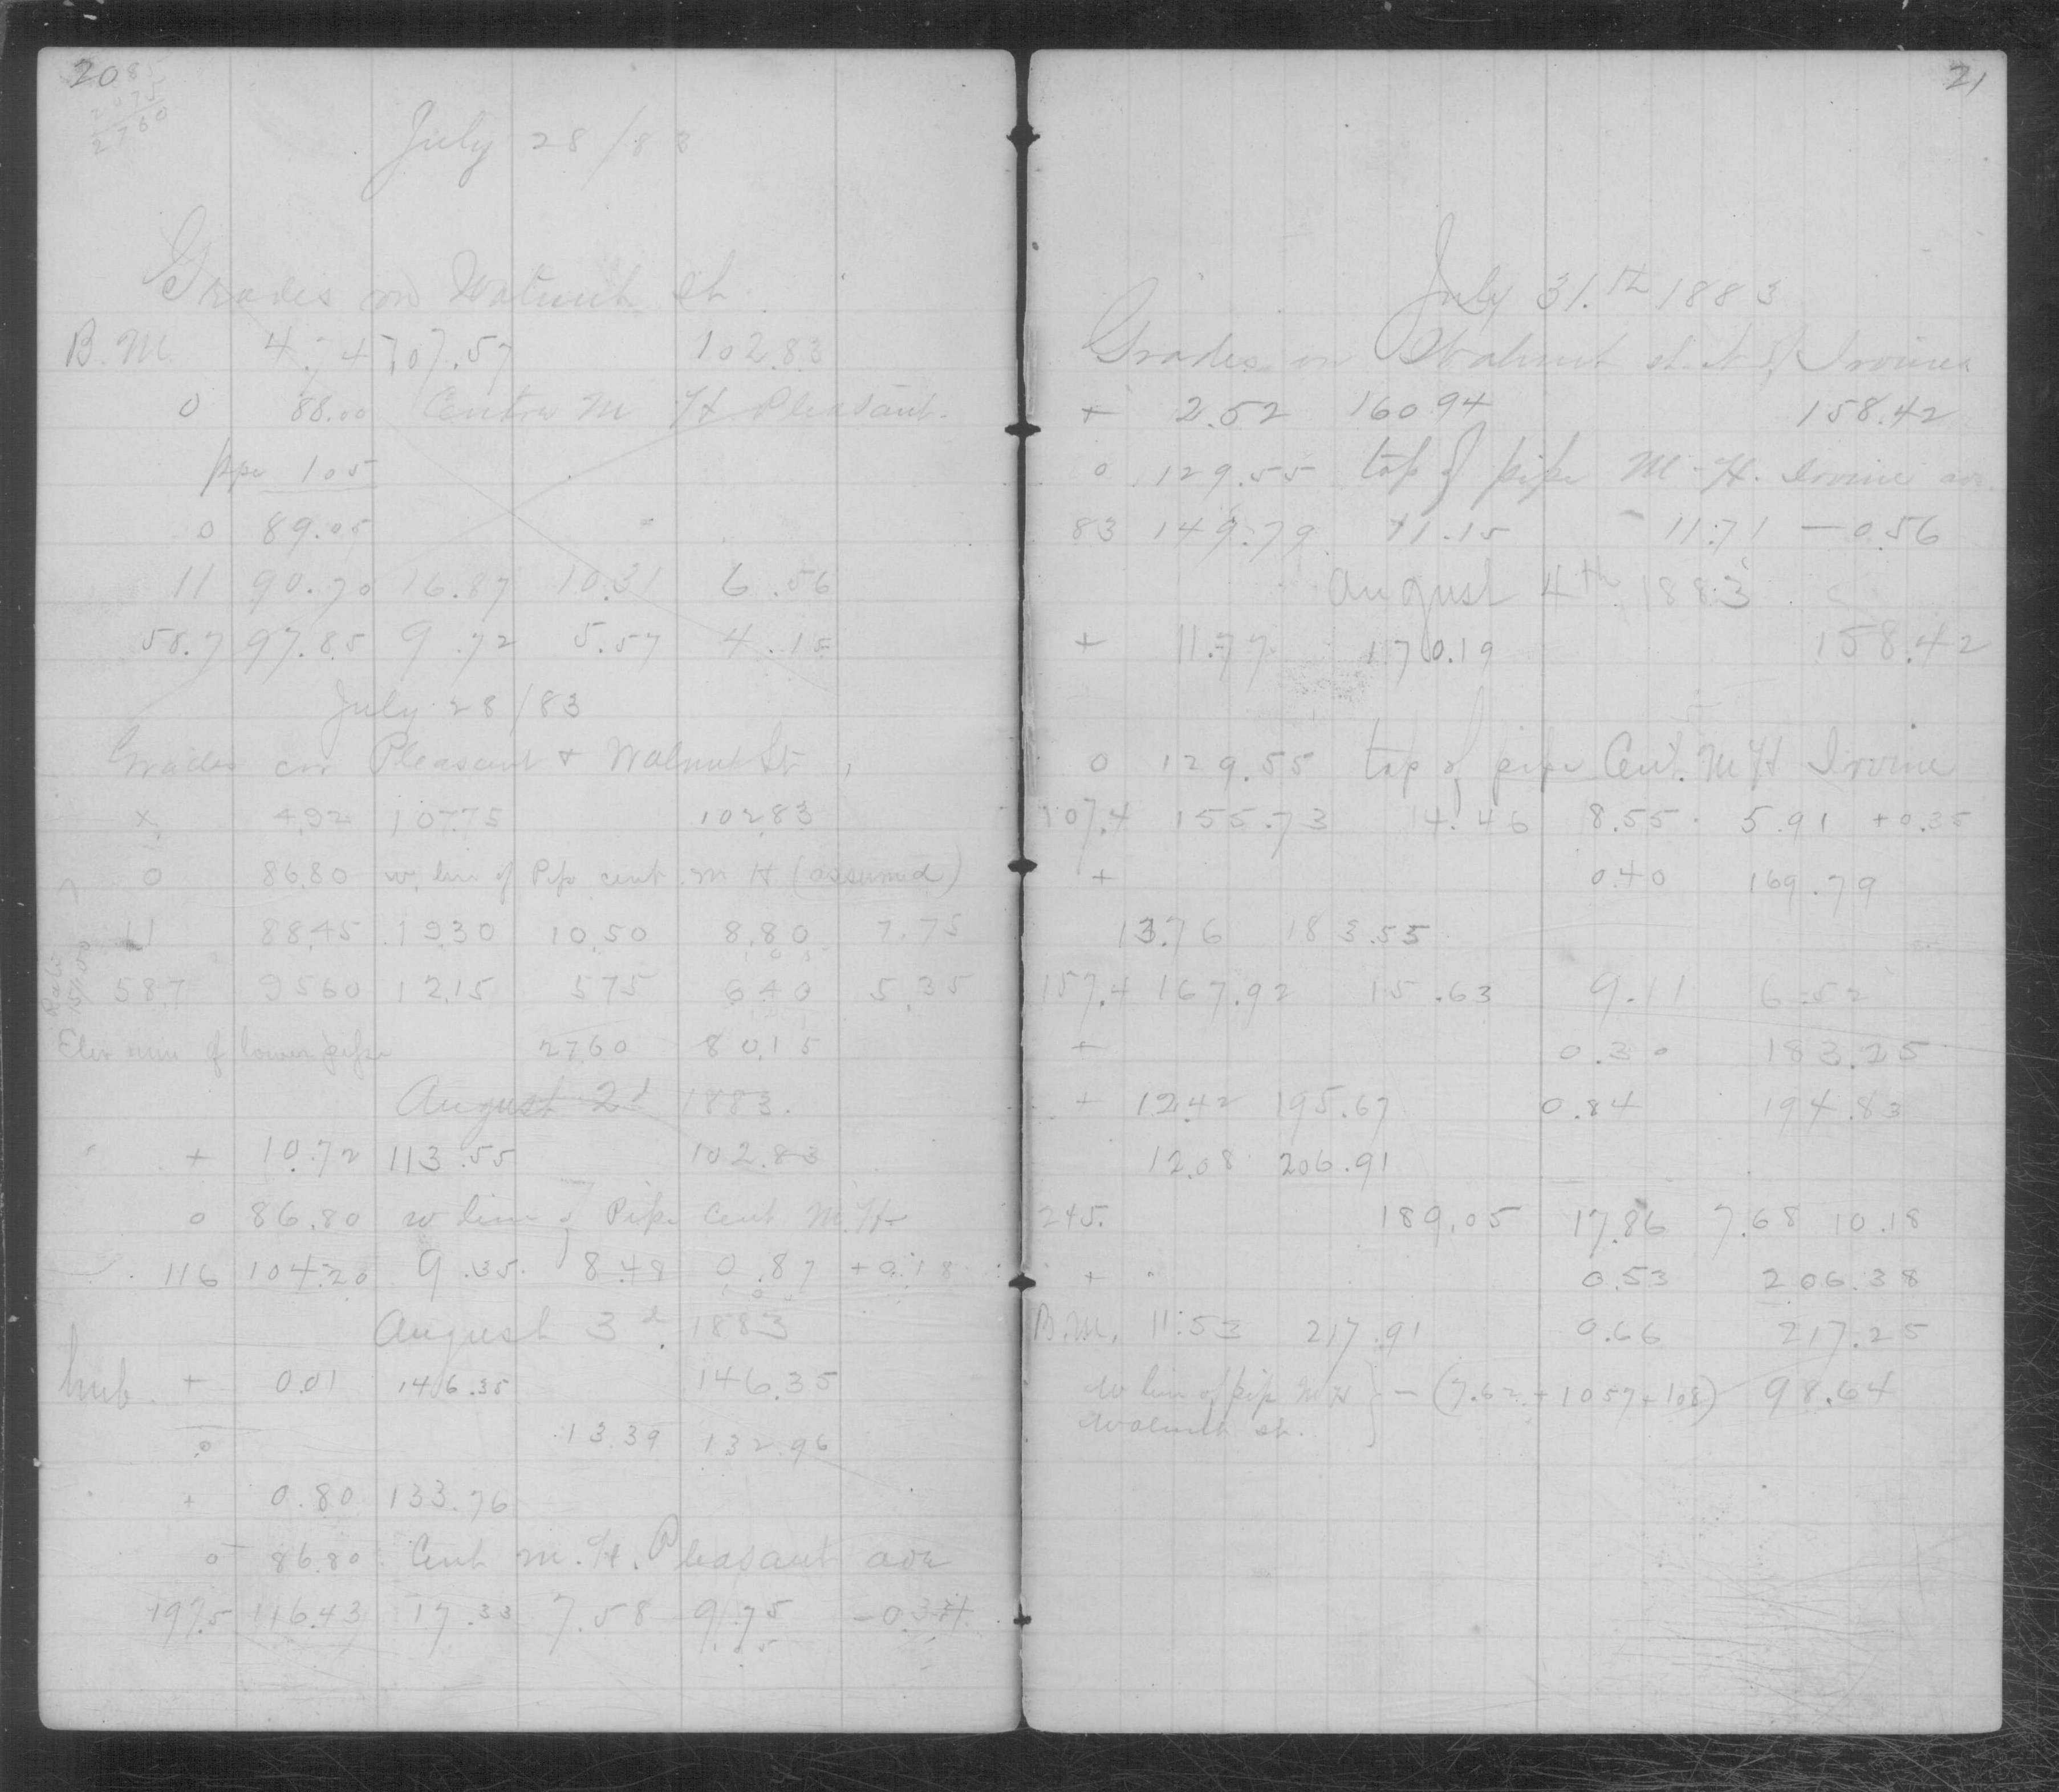 20
2075
2760
July 28/83
Grades on Walnut St.
B.M. 4.74 107.57 102.83
0 88.00 Centre M H Pleasant.
pipe 105
0 89.05
11 90.70 16.87 10.31 6.56
58.7 97.85 9.72 5.57 4.15
July 28/83
Grades on Pleasant & Walnut St,
x 4.92 107.75 102.83
0 86.80 w. line of Pipe cent. M H (assumed)
11 88.45 19.30 10.50 8.80 7.75
58.7 95.60 12.15 5.75 6.40 5.35
Elev of lower pipe 27.60 80.15
August 2d 1883.
+ 10.72 113.55 102.83
0 86.80 w line of Pipe Cent M.H.
116 104.20 9.35 8.48 0.87 +0.18
August 3d 1883
hub + 0.01 146.35 146.35
0 13.39 132.96
+ 0.80 133.76
0 86.80 Cent M.H. Pleasant ave
197.5 116.43 17.33 7.58 9.75
21
July 31.th 1883
Grades on Walnut st. at Irvines
+ 2.52 160.94 158.42
0 129.55 top of pipe M-H. Irvine av.
83 149.79 11.15 11.71 -0.56
August 4th 1883
+ 11.77 170.19 158.42
0 129.55 top of pipe Cent. M H Irvine
107.4 155.73 14.46 8.55 5.91 +0.35
+ 0.40 169.79
13.76 183.55
157.4 167.92 15.63 9.11 6.52
+ 0.30 183.25
+ 12.42 195.67 0.84 194.83
12.08 206.91
245. 189.05 17.86 7.68 10.18
+ 0.53 206.38
B.M. 11.53 217.91 0.66 217.25
w line of pipe M H } - (7.62 + 10.57 + 108) 98.64
Walnut st.